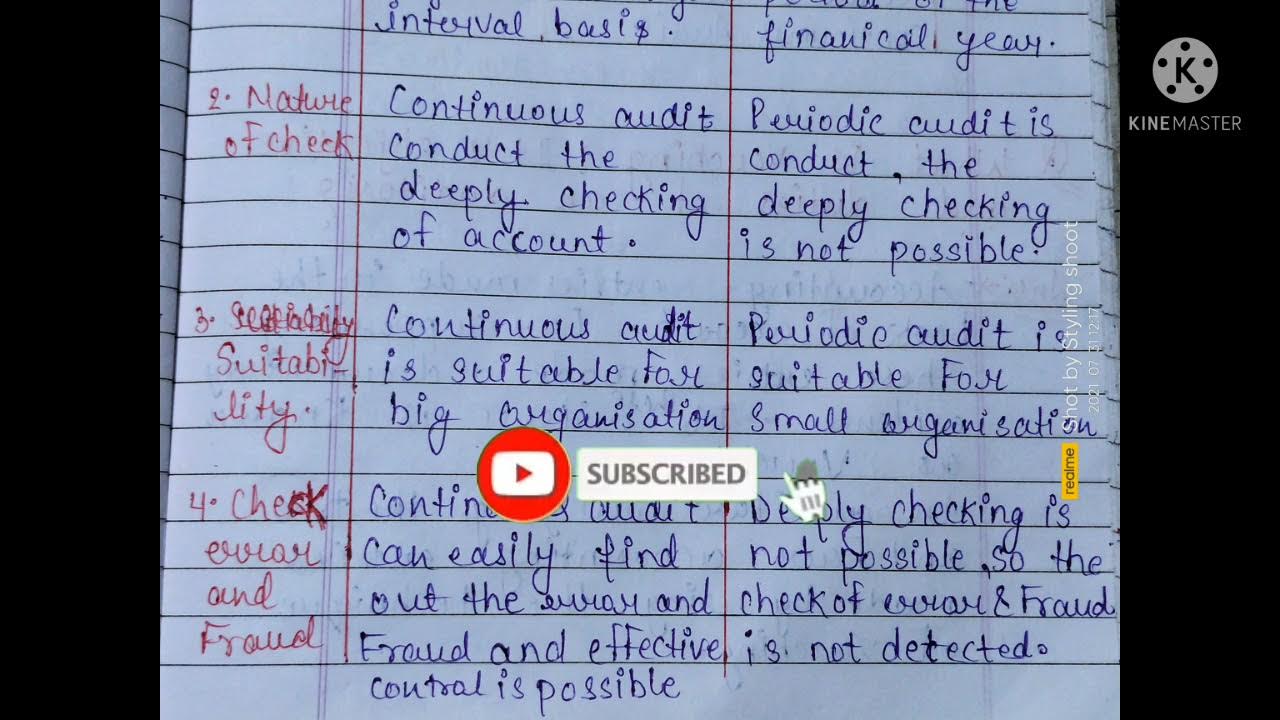 interval basis.
finanical year.
2. Nature
of check
Continuous audit
conduct the
deeply checking
of account.
Periodic audit is
conduct, the
deeply checking
is not possible.
3.
Suitabi-
lity.
Continuous audit
is suitable For
big organisation
Periodic audit is
suitable For
small organisation
4. Check
error
and
Fraud
audit
can easily find
out the error and
Fraud and effective
control is possible
Deeply checking is
not possible, so the
check of error & Fraud
is not detected.
SUBSCRIBED
K
KINEMASTER
realme
Shot by Styling shoot
2021 07 31 12:17